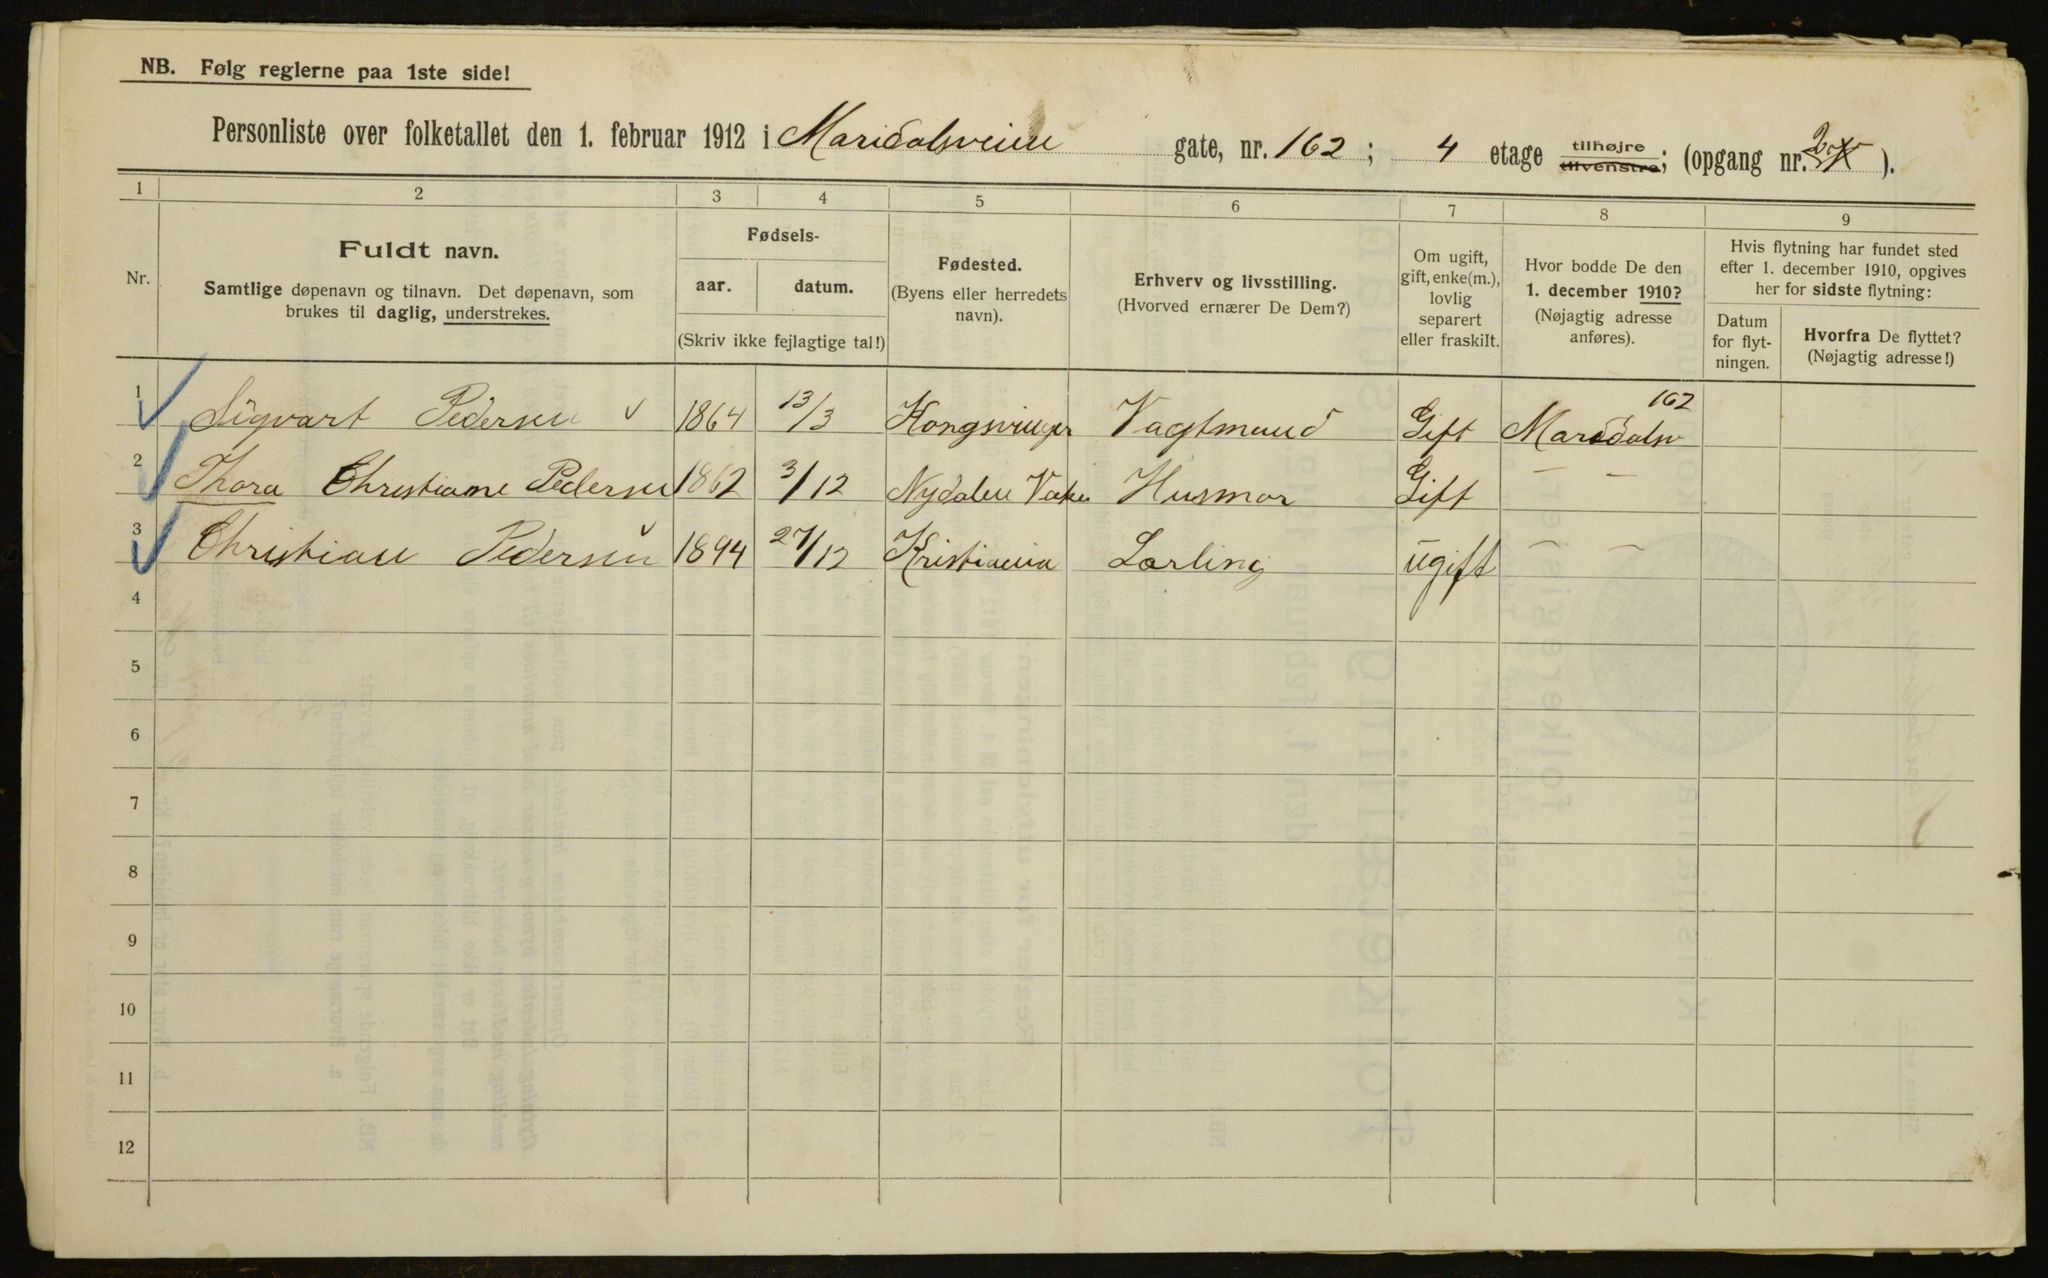 NB. Følg reglerne paa 1ste side!
Personliste over folketallet den 1. februar 1912 i Maridalsveien gate, nr. 162 ; 4 etage tilhøjre tilvenstre; (opgang nr. ).
1 2 3 4 5 6 7 8 9
Nr.
Fuldt navn.
Samtlige døpenavn og tilnavn. Det døpenavn, som
brukes til daglig, understrekes.
Fødsels-
aar. datum.
(Skriv ikke fejlagtige tal!)
Fødested.
(Byens eller herredets
navn).
Erhverv og livsstilling.
(Hvorved ernærer De Dem?)
Om ugift,
gift, enke(m.),
lovlig
separert
eller fraskilt.
Hvor bodde De den
1. december 1910?
(Nøjagtig adresse
anføres).
Hvis flytning har fundet sted
efter 1. december 1910, opgives
her for sidste flytning:
Datum
for flyt-
ningen.
Hvorfra De flyttet?
(Nøjagtig adresse!)
1 Sigvart Pedersen 1864 13/3 Kongsvinger Vagtmand Gift Maridalsv 162
2 Thora Christiane Pedersen 1862 3/12 Nydalen V. Aker Husmor Gift — —
3 Christian Pedersen 1894 27/12 Kristiania Lærling ugift — —
4
5
6
7
8
9
10
11
12